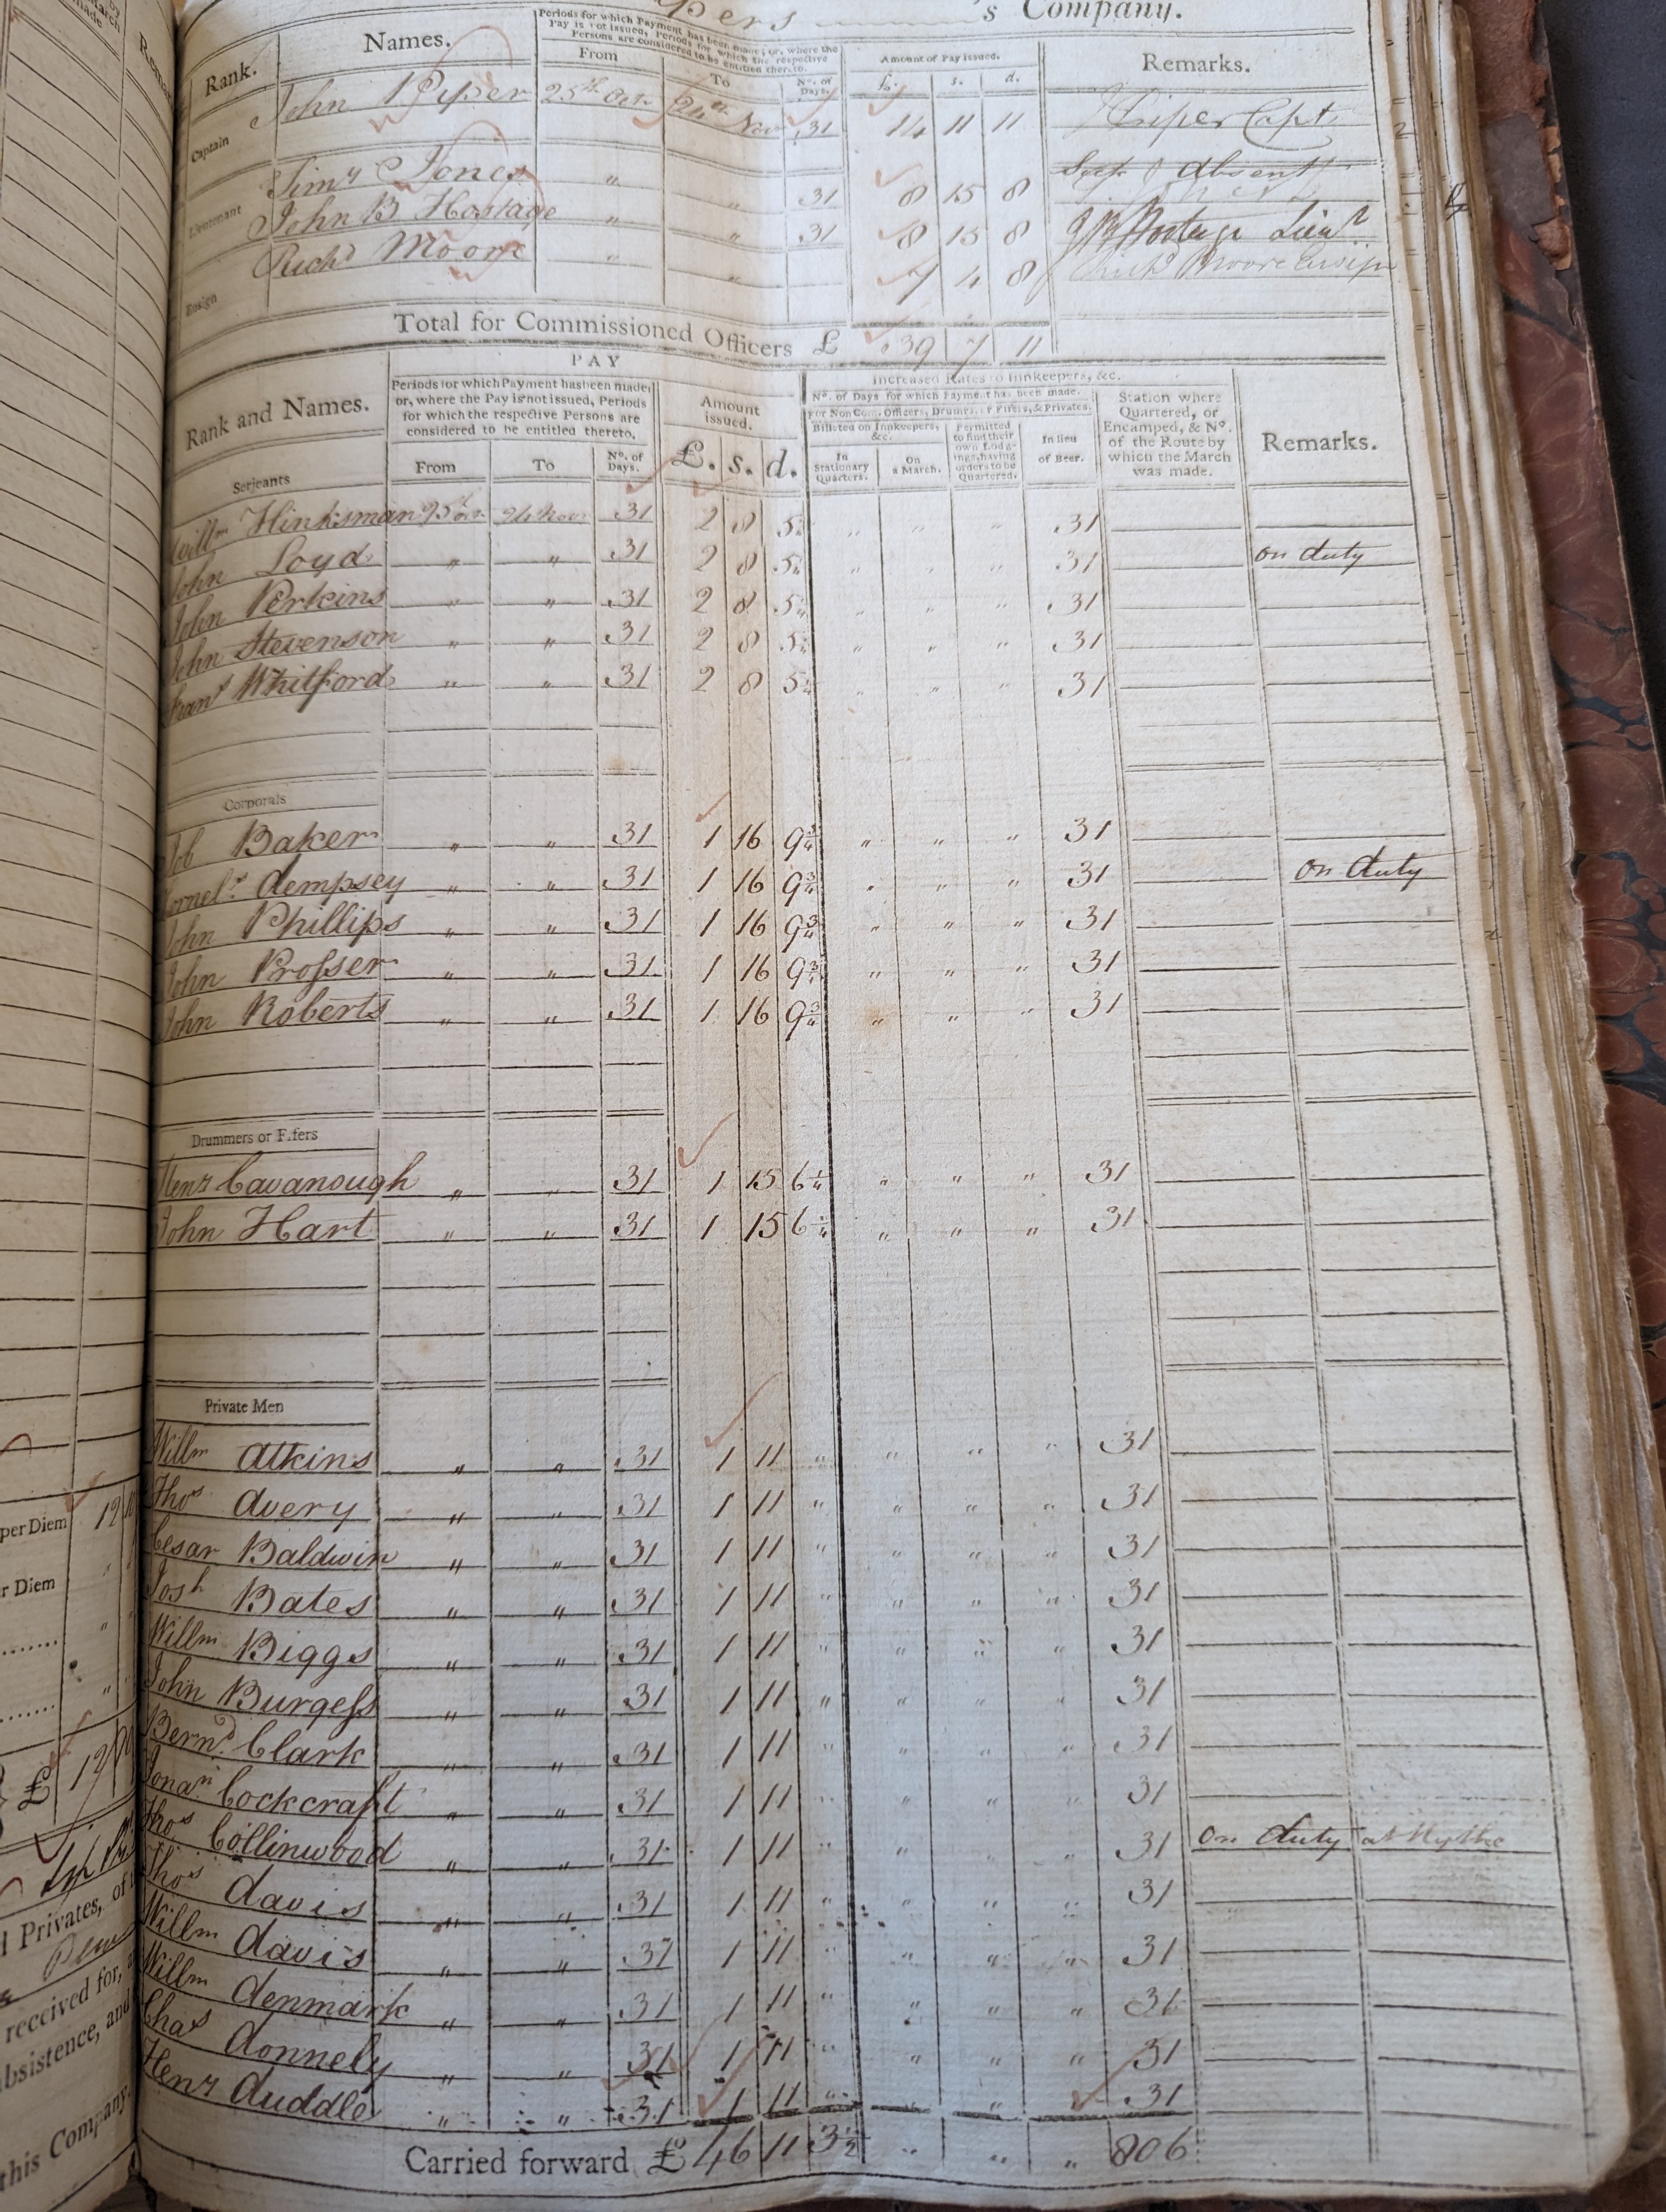 's Company.
Rank. Names. Periods for which Payment has been made; or, where the Pay is not issued, Periods for which the respective Persons are considered to be entitled thereto. Amount of Pay issued. Remarks.
From To No. of Days. £. s. d.
Captain John Piper 25th Octr 24th Nov 31 14 11 11 J Piper Capt.
Lieutenant Simn Jones " " 31 8 15 8 Absent
John B Hostage " " 31 8 15 8 J B Hostage Lieut
Ensign Richd Moore " " 7 4 8 Richd Moore Ensign
Total for Commissioned Officers £ 39 7 11
PAY
Rank and Names. Periods for which Payment has been made; or, where the Pay is not issued, Periods for which the respective Persons are considered to be entitled thereto. Amount issued. Increased Rates to Innkeepers, &c. Station where Quartered, or Encamped, & No. of the Route by which the March was made. Remarks.
No. of Days for which Payment has been made.
For Non Com. Officers, Drumrs. Fifers, & Privates.
Billeted on Innkeepers, &c. Permitted to find their own Lodgings, having orders to be Quartered. In lieu of Beer.
From To No. of Days. £. s. d. In Stationary Quarters. On a March.
Serjeants
Willm Hinksman 25th Octr 24 Novr 31 2 8 5¼ " " " 31
John Loyd " " 31 2 8 5¼ " " " 31 on duty
John Perkins " " 31 2 8 5¼ " " " 31
John Stevenson " " 31 2 8 5¼ " " " 31
Frans Whitford " " 31 2 8 5¼ " " " 31
Corporals
Job Baker " " 31 1 16 9¾ " " " 31
Cornels dempsey " " 31 1 16 9¾ " " " 31 on duty
John Phillips " " 31 1 16 9¾ " " " 31
John Proſser " " 31 1 16 9¾ " " " 31
John Roberts " " 31 1 16 9¾ " " " 31
Drummers or Fifers
Heny Cavanough " " 31 1 15 6¼ " " " 31
John Hart " " 31 1 15 6¼ " " " 31
Private Men
Willm Atkins " " 31 1 11 " " " " 31
Thos Avery " " 31 1 11 " " " " 31
Cesar Baldwin " " 31 1 11 " " " " 31
Josh Bates " " 31 1 11 " " " " 31
Willm Biggs " " 31 1 11 " " " " 31
John Burgeſs " " 31 1 11 " " " " 31
Bernd Clark " " 31 1 11 " " " " 31
Jonan Cockcraft " " 31 1 11 " " " " 31
Thos Collinwood " " 31 1 11 " " " " 31 On duty at Hythe
Thos davis " " 31 1 11 " " " " 31
Willm davis " " 31 1 11 " " " " 31
Willm denmark " " 31 1 11 " " " " 31
Chas donnely " " 31 1 11 " " " " 31
Heny duddle " " 31 1 11 " " " " 31
Carried forward £ 46 11 3½ " " " 806
per Diem
r Diem
£
l Privates, of
received for,
ubsistence, and
this Company